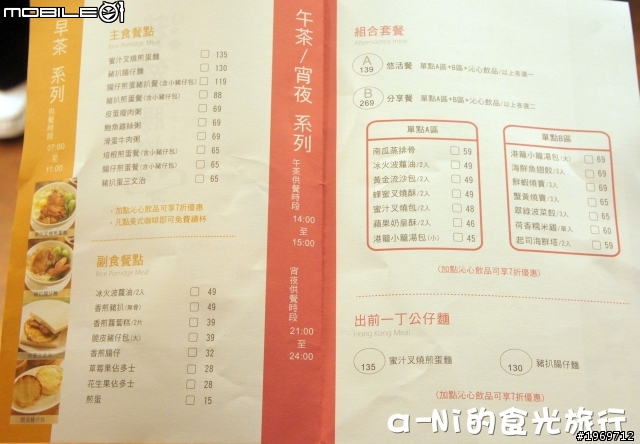 mobile01
早茶 系列
供餐時間
07:00
至
11:00
主食餐點
Rice Porridge Meal
蜜汁叉燒煎蛋麵 135
豬扒腸仔麵 130
腸仔煎蛋豬扒餐(含小豬仔包) 119
豬扒煎蛋餐(含小豬仔包) 88
皮蛋瘦肉粥 69
鮑魚雞絲粥 69
滑蛋牛肉粥 69
培根煎蛋餐(含小豬仔包) 65
腸仔煎蛋餐(含小豬仔包) 65
豬扒蛋三文治 65
・加點沁心飲品可享7折優惠
・凡點美式咖啡即可免費續杯
副食餐點
Rice Porridge Meal
冰火波蘿油/2人 49
香煎豬扒(無骨) 49
香煎蘿蔔糕/2片 39
脆皮豬仔包(大) 39
香煎腸仔 32
草莓果佔多士 28
花生果佔多士 28
煎蛋 15
午茶/宵夜 系列
午茶供餐時段
14:00
至
15:00
宵夜供餐時段
21:00
至
24:00
組合套餐
Afternoontea meal
A
139
悠活餐 單點A區+B區+沁心飲品/以上各選一
B
269
分享餐 單點A區+B區+沁心飲品/以上各選二
單點A區
南瓜蒸排骨 59
冰火波蘿油/2人 49
黃金流沙包/2入 49
蜂蜜叉燒酥/2入 49
蜜汁叉燒包/2入 48
蘋果奶皇酥/2入 46
港籠小籠湯包(小) 45
單點B區
港籠小籠湯包(大) 69
海鮮魚翅餃/3入 69
鮮蝦燒賣/3入 69
蟹黃燒賣/3入 65
翠綠波菜餃/3入 65
荷香糯米雞/1入 60
起司海鮮塔/2入 59
(加點沁心飲品可享7折優惠)
出前一丁公仔麵
Hong Kong Meal
135 蜜汁叉燒煎蛋麵
130 豬扒腸仔麵
(加點沁心飲品可享7折優惠)
a-Ni的食光旅行
#1969712